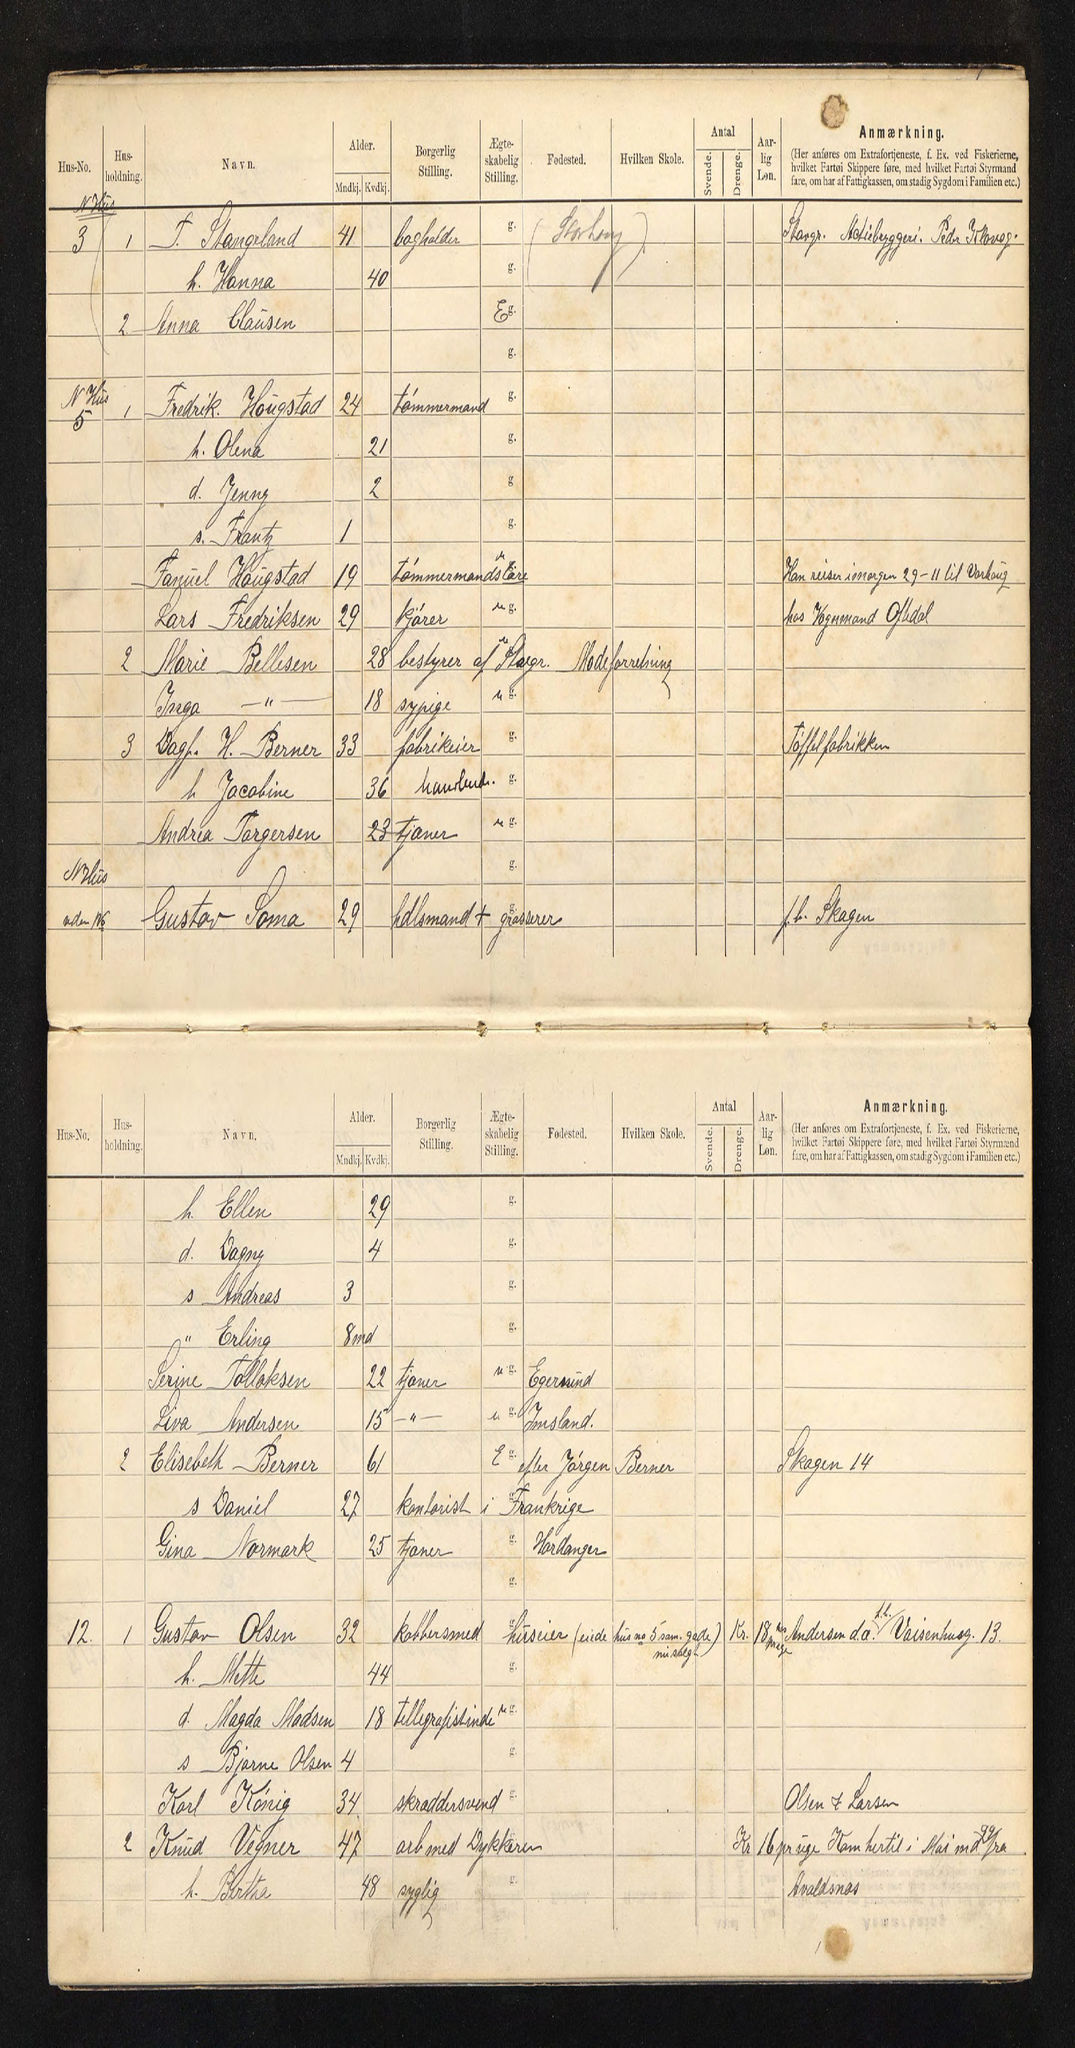 Hus-No. Hus-holdning. Navn. Alder. Mndkj. Kvdkj. Borgerlig Stilling. Ægte-skabelig Stilling. Fødested. Hvilken Skole. Antal Svende. Drenge. Aar-lig Løn. Anmærkning.
(Her anføres om Extrafortjeneste, f. Ex. ved Fiskerierne, hvilket Fartøi Skippere føre, med hvilket Fartøi Styrmand fare, om har af Fattigkassen, om stadig Sygdom i Familien etc.)
N Hus
3 1 T. Stangeland 41 bogholder g. Stavgr. Actiebryggeri. Peder
h. Hanna 40 g.
2 Anna Clausen E g.
g.
N Hus
5 1 Fredrik. Hougstad 24 tømmermand g.
h. Olena 21 g.
d. Jenny 2 g
s. Frantz 1 g.
Fanuel Hougstad 19 tømmermandslære Han reiser imorgen 29-11 til Varhoug
Lars Fredriksen 29 kjører u g. hos Vognmand Oftedal
2 Marie Bellesen 28 bestyrer af Stavgr. Modeforretning
Inga —"— 18 sypige u g.
3 Dagf. H. Berner 33 fabrikeier g. Tøffelfabrikken
h Jacobine 36 g.
Andrea Torgersen 23 tjener u g.
g.
N Hus
uden No Gustav Soma 29 hdlsmand + grosserer g. f. b. Skagen
Hus-No. Hus-holdning. Navn. Alder. Mndkj. Kvdkj. Borgerlig Stilling. Ægte-skabelig Stilling. Fødested. Hvilken Skole. Antal Svende. Drenge. Aar-lig Løn. Anmærkning.
(Her anføres om Extrafortjeneste, f. Ex. ved Fiskerierne, hvilket Fartøi Skippere føre, med hvilket Fartøi Styrmænd fare, om har af Fattigkassen, om stadig Sygdom i Familien etc.)
h. Ellen 29 g.
d. Dagny 4 g.
s Andreas 3 g.
" Erling 8 md g.
Serine Tollaksen 22 tjener u g. Egersund
Liva Andersen 15 —"— u g. Imsland.
2 Elisebeth Berner 61 E g. efter Jørgen Berner Skagen 14
s Daniel 27 kontorist i Frankrige
Gina Normark 25 tjener g. Hardanger
g.
12. 1 Gustav Olsen 32 kobbersmed huseier (eiede hus no 5 sam. gade) Kr. 18 pr uge Andersen d.a. f.b. Vaisenhusg. 13.
h. Mette 44 g.
d. Magda Madsen 18 tellegrafistinde u g.
s Bjarne Olsen 4 g.
Karl König 34 skræddersvend g. Olsen & Larsen
2 Knud Vegner 47 arb med Dykkeren Kr 16 pr uge Kom hertil i Mai md fra
h. Bertha 48 syglig g. Avaldsnæs